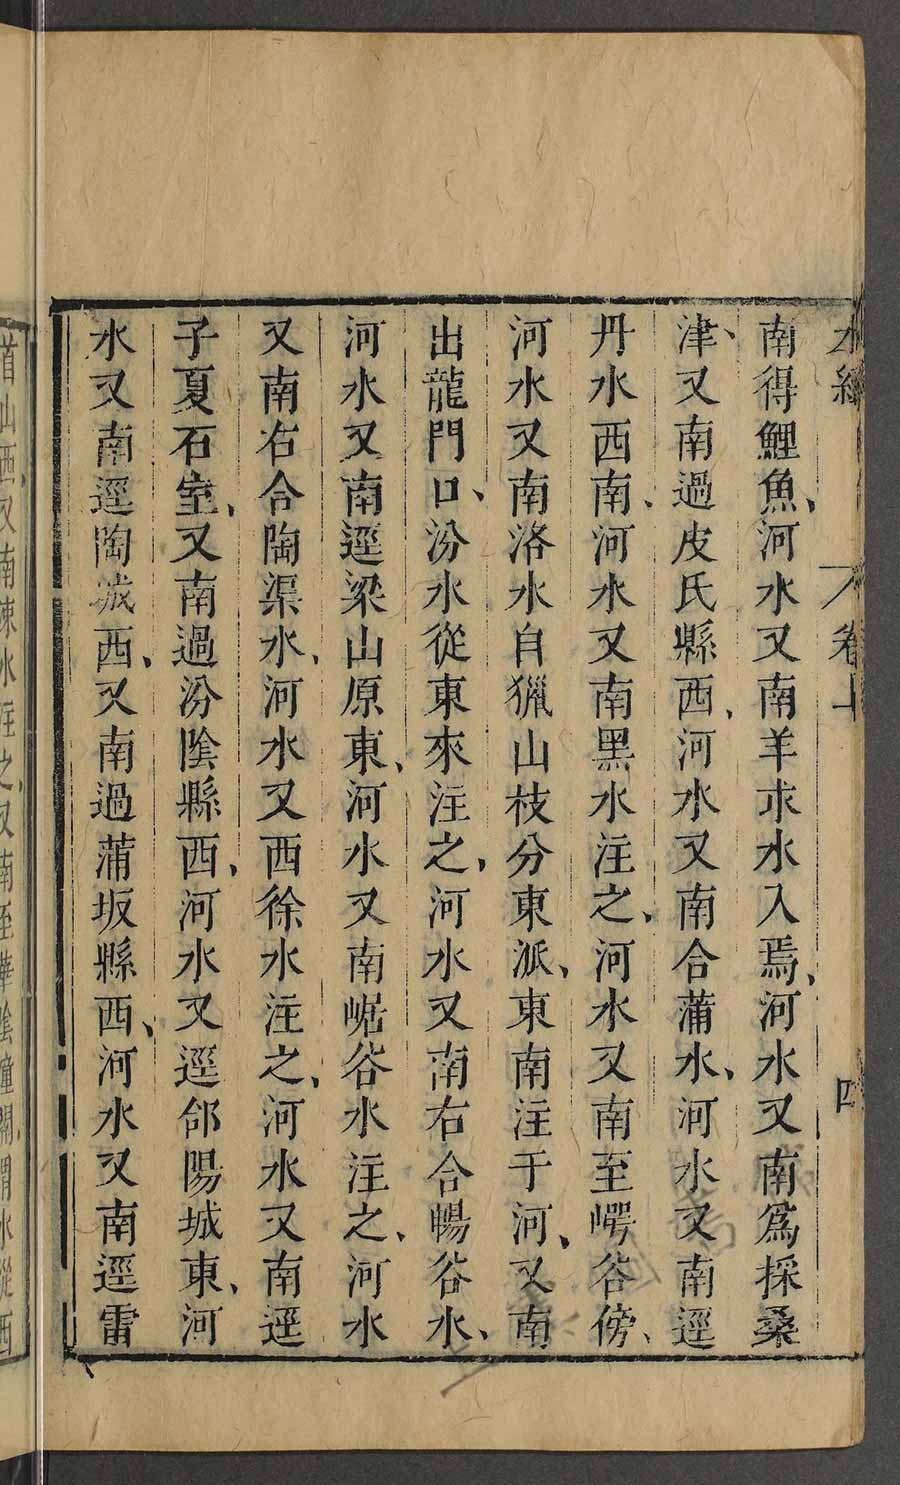 水經 卷上 四
南得鯉魚、河水又南羊求水入焉、河水又南爲採桑
津、又南過皮氏縣西、河水又南合蒲水、河水又南逕
丹水西南、河水又南黑水注之、河水又南至崿谷傍、
河水又南洛水自獵山枝分東派、東南注于河、又南
出龍門口、汾水從東來注之、河水又南右合暢谷水、
河水又南逕梁山原東、河水又南崌谷水注之、河水
又南右合陶渠水、河水又西徐水注之、河水又南逕
子夏石室、又南過汾陰縣西、河水又逕郃陽城東、河
水又南逕陶城西、又南過蒲坂縣西、河水又南逕雷
首山西、又南涑水注之、又南至華陰潼關、渭水從西